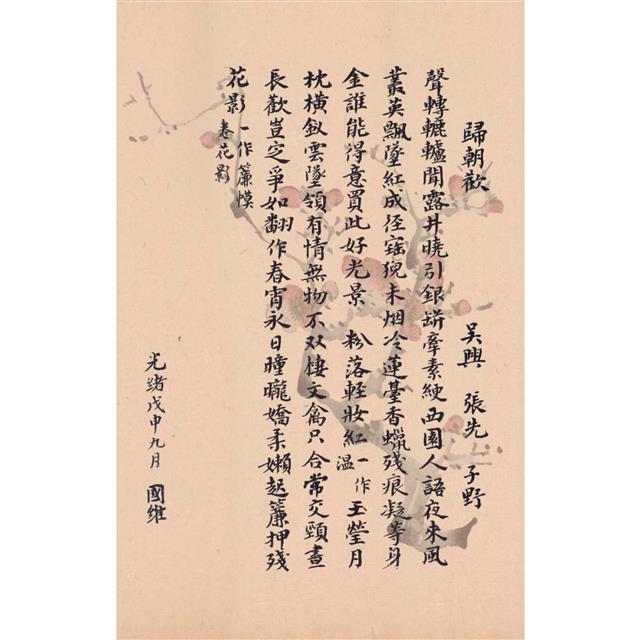 歸朝歡 吳興 張先 子野
聲轉轆轤聞露井曉引銀缾牽素綆西園人語夜來風
叢英飄墜紅成徑寶猊未烟冷蓮臺香蠟殘痕凝等身
金誰能得意買此好光景 粉落輕妝紅一作溫玉瑩月
枕橫釵雲墜領有情無物不双棲文禽只合常交頸晝
長歡豈定爭如翻作春宵永日曈曨嬌柔嬾起簾押殘
花影一作簾幙卷花影
光緒戊申九月 國維